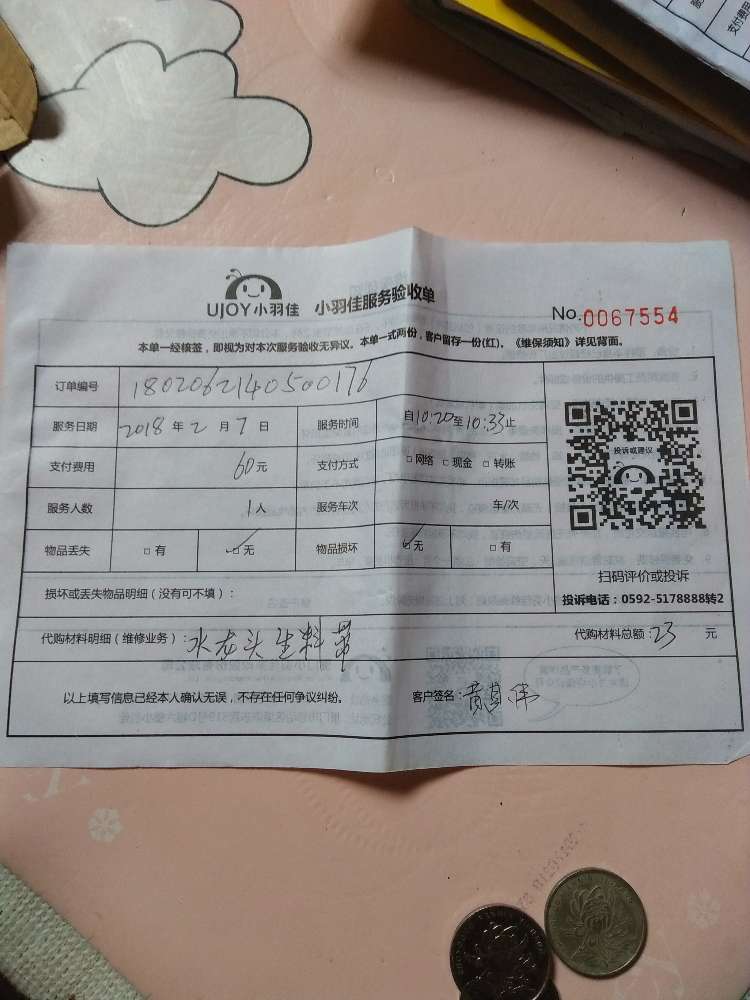 UJOY小羽佳 小羽佳服务验收单
No.0067554
本单一经核签，即视为对本次服务验收无异议。本单一式两份，客户留存一份(红)。《维保须知》详见背面。
订单编号 1802062140500176
服务日期 2018年2月7日 服务时间 自10:20至10:33止
支付费用 60元 支付方式 □网络 □现金 □转账
服务人数 1人 服务车次 车/次
物品丢失 □有 □无 物品损坏 □无 □有
投诉或建议
扫码评价或投诉
损坏或丢失物品明细（没有可不填）：
投诉电话：0592-5178888转2
代购材料明细（维修业务）：水龙头生料带 代购材料总额：23 元
以上填写信息已经本人确认无误，不存在任何争议纠纷。 客户签名：黄其伟
支付费用